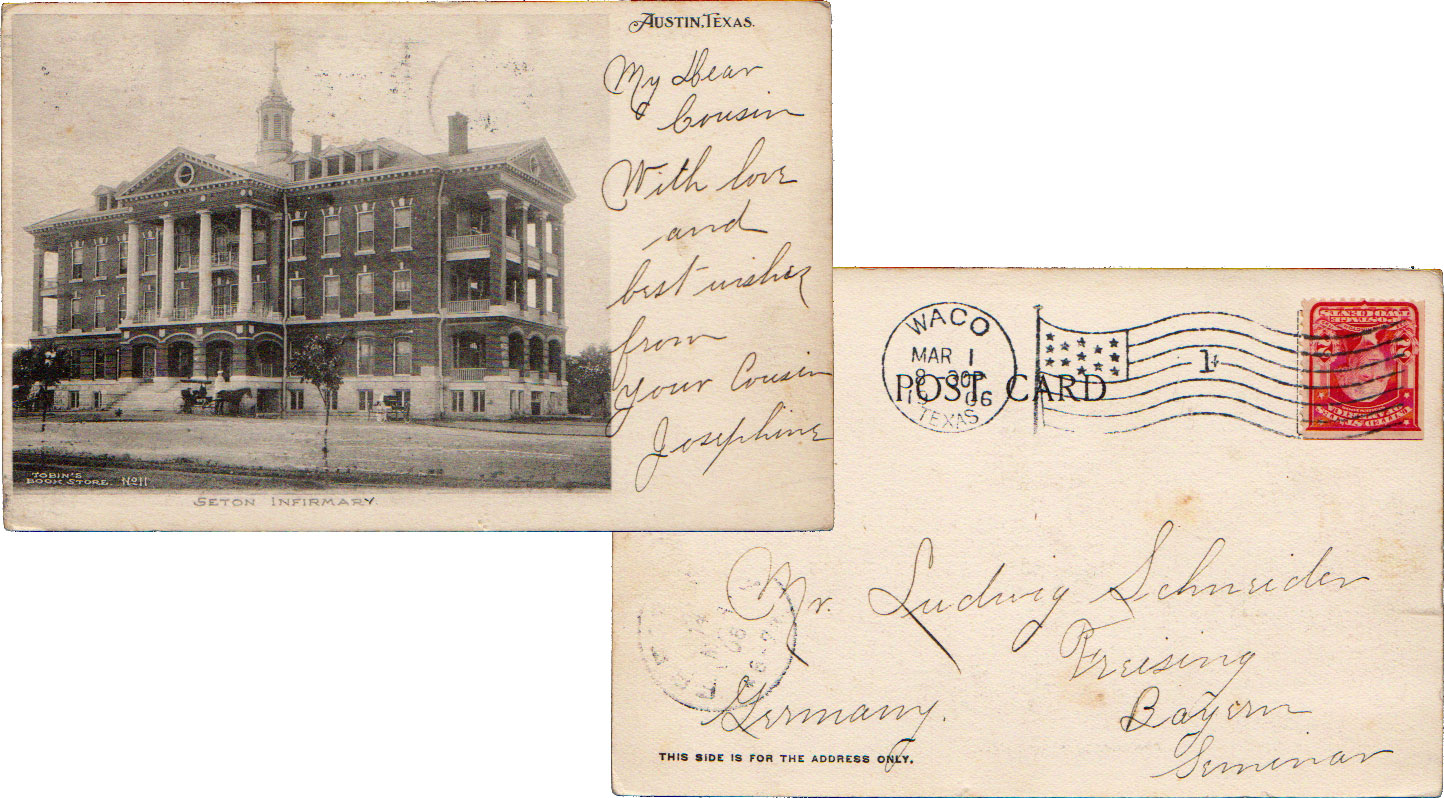 AUSTIN, TEXAS.
My Dear
Cousin
With love
and
best wishes
from
your Cousin
Josephine
TOBIN'S
BOOK STORE. No 11
SETON INFIRMARY.
WACO
MAR 1
8 30P
06
TEXAS
1
POST CARD
2 2
Mr. Ludwig Schneider
Freising
Germany.
Bayern
Seminar
THIS SIDE IS FOR THE ADDRESS ONLY.